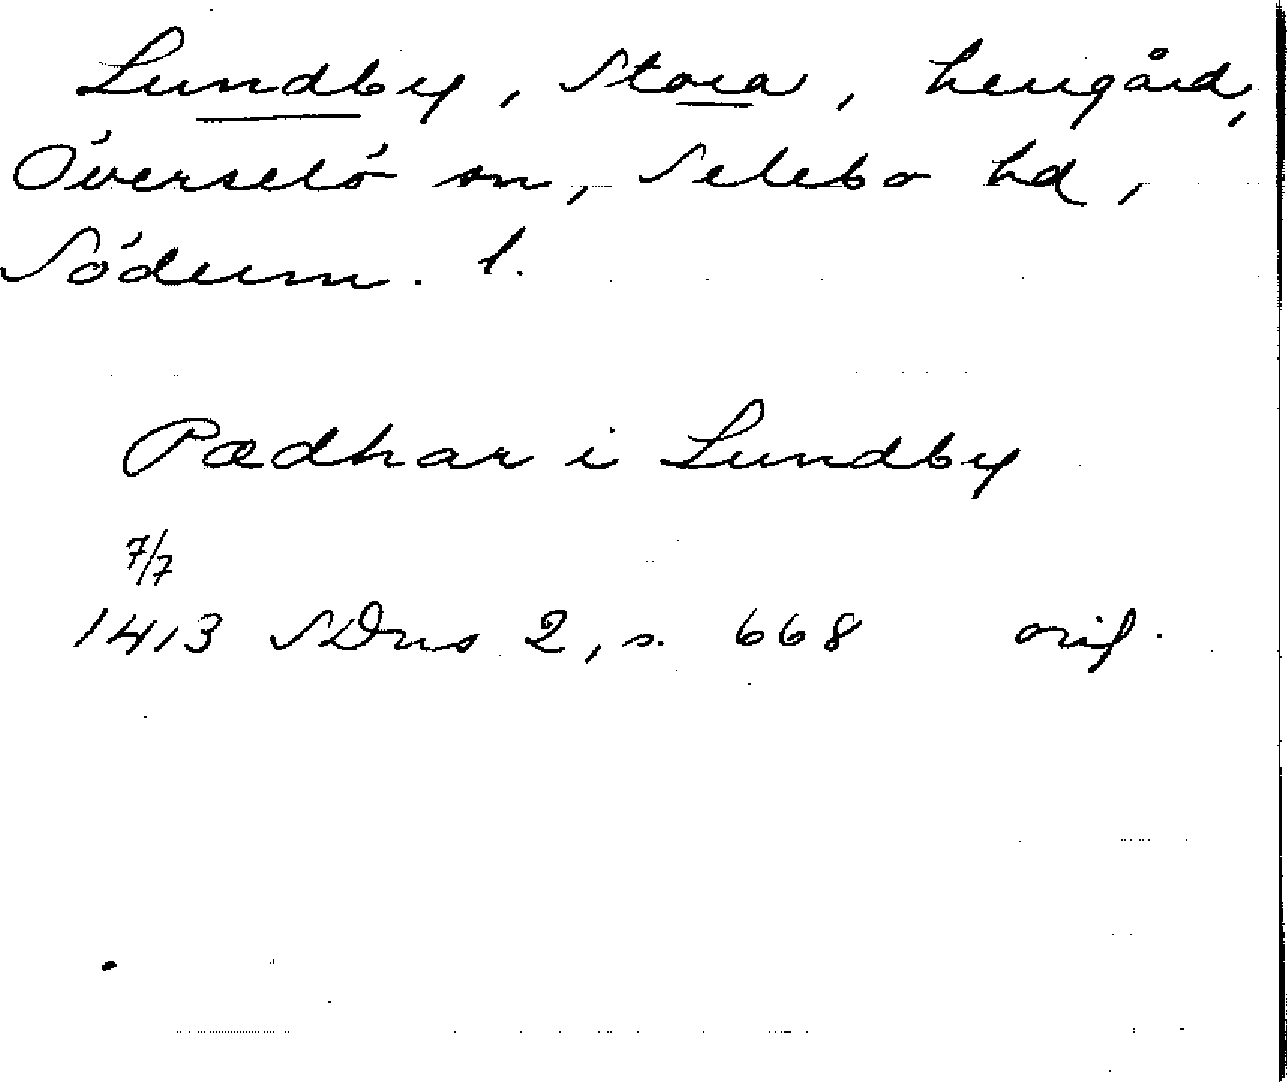 Lundby, Stora, herrgård,
Överselö sn, Selebo hd,
Söderm. l.
Pædhar i Lundby
7/7
1413 SDns 2, s. 668 orig.